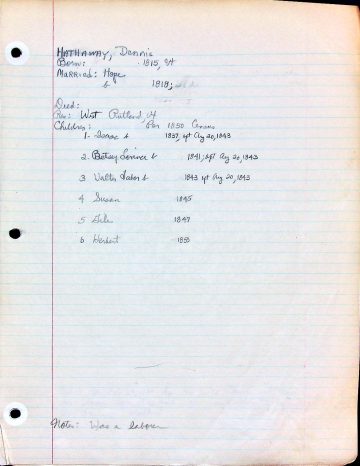 HATHAWAY, Dennis
Born: 1815, Vt
Married: Hope
b 1818;
Died:
Res: West Rutland, Vt
Children: Per 1850 Census
1. Isaac b 1837, bpt Aug 20, 1843
2. Betsey b 1841, bpt Aug 20, 1843
3 Walter b 1843 bpt Aug 20, 1843
4 Susan 1845
5 1847
6 Herbert 1850
Notes: Was a laborer